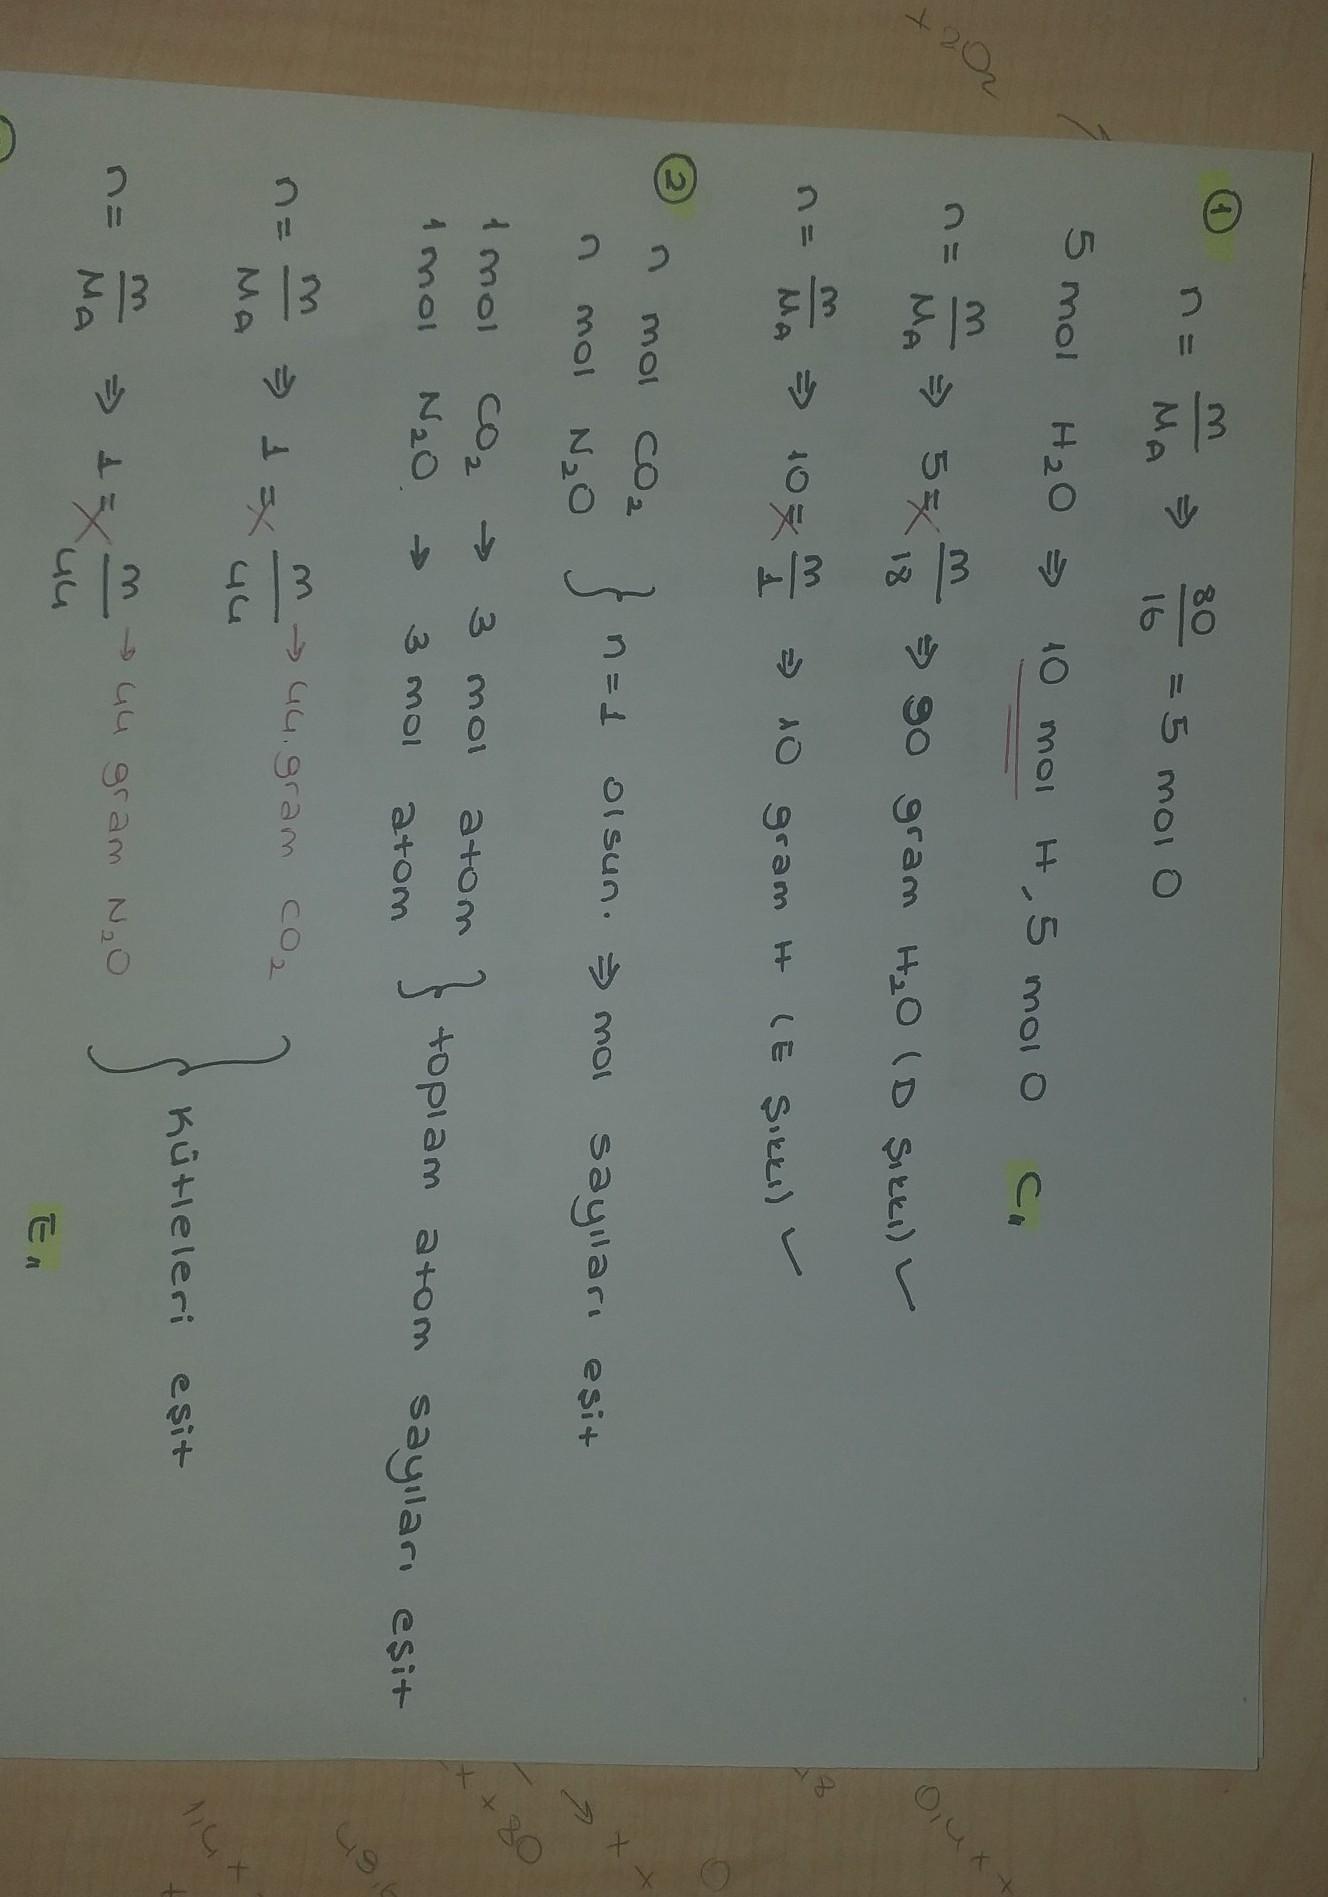 ①
n = m/MA ⇒ 80/16 = 5 mol O
5 mol H₂O ⇒ 10 mol H, 5 mol O C//
n = m/MA ⇒ 5 = m/18 ⇒ 90 gram H₂O (D şıkkı) ✓
n = m/MA ⇒ 10 = m/1 ⇒ 10 gram H (E şıkkı) ✓
②
n mol CO₂
n mol N₂O } n = 1 olsun. ⇒ mol sayıları eşit
1 mol CO₂ → 3 mol atom
1 mol N₂O → 3 mol atom } toplam atom sayıları eşit
n = m/MA ⇒ 1 = m/44 → 44 gram CO₂
n = m/MA ⇒ 1 = m/44 → 44 gram N₂O } Kütleleri eşit
E//